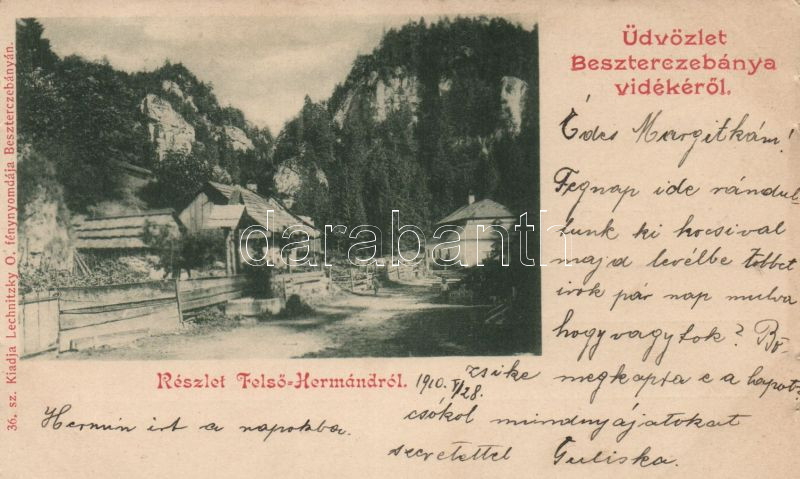 Üdvözlet
Beszterczebánya
vidékéről.
36. sz. Kiadja Lechnitzky O. fénynyomdája Beszterczebányán.
darabanth
Részlet Felső-Hermándról.
1910. V/28.
Édes Margitkám!
Tegnap ide rándul
tunk ki kocsival
majd levélbe többet
irok pár nap mulva
hogy vagytok? Bö
zsike megkapta e a lapot?
csókol mindnyájatokat
szeretettel Juliska.
Hermin irt a napokba.